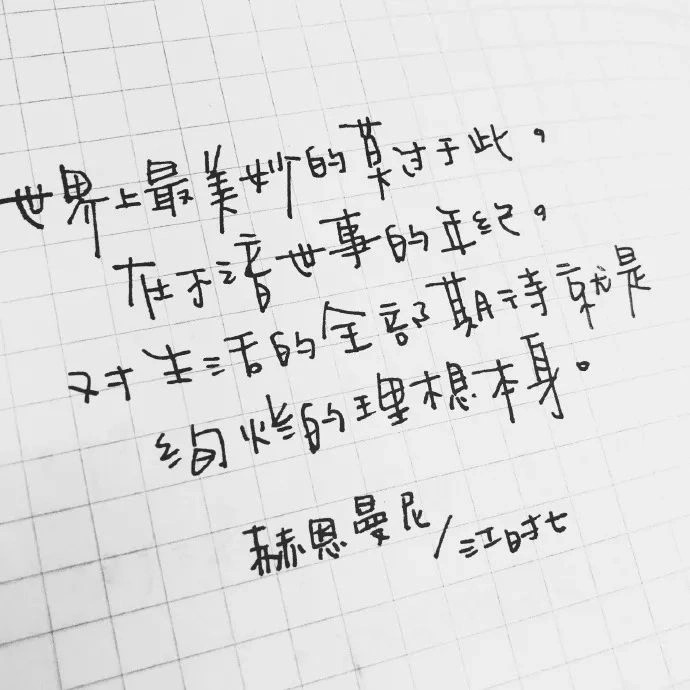 世界上最美妙的莫过于此。
在不谙世事的年纪。
对生活的全部期待就是
绚烂的理想本身。
赫恩曼尼/江时七